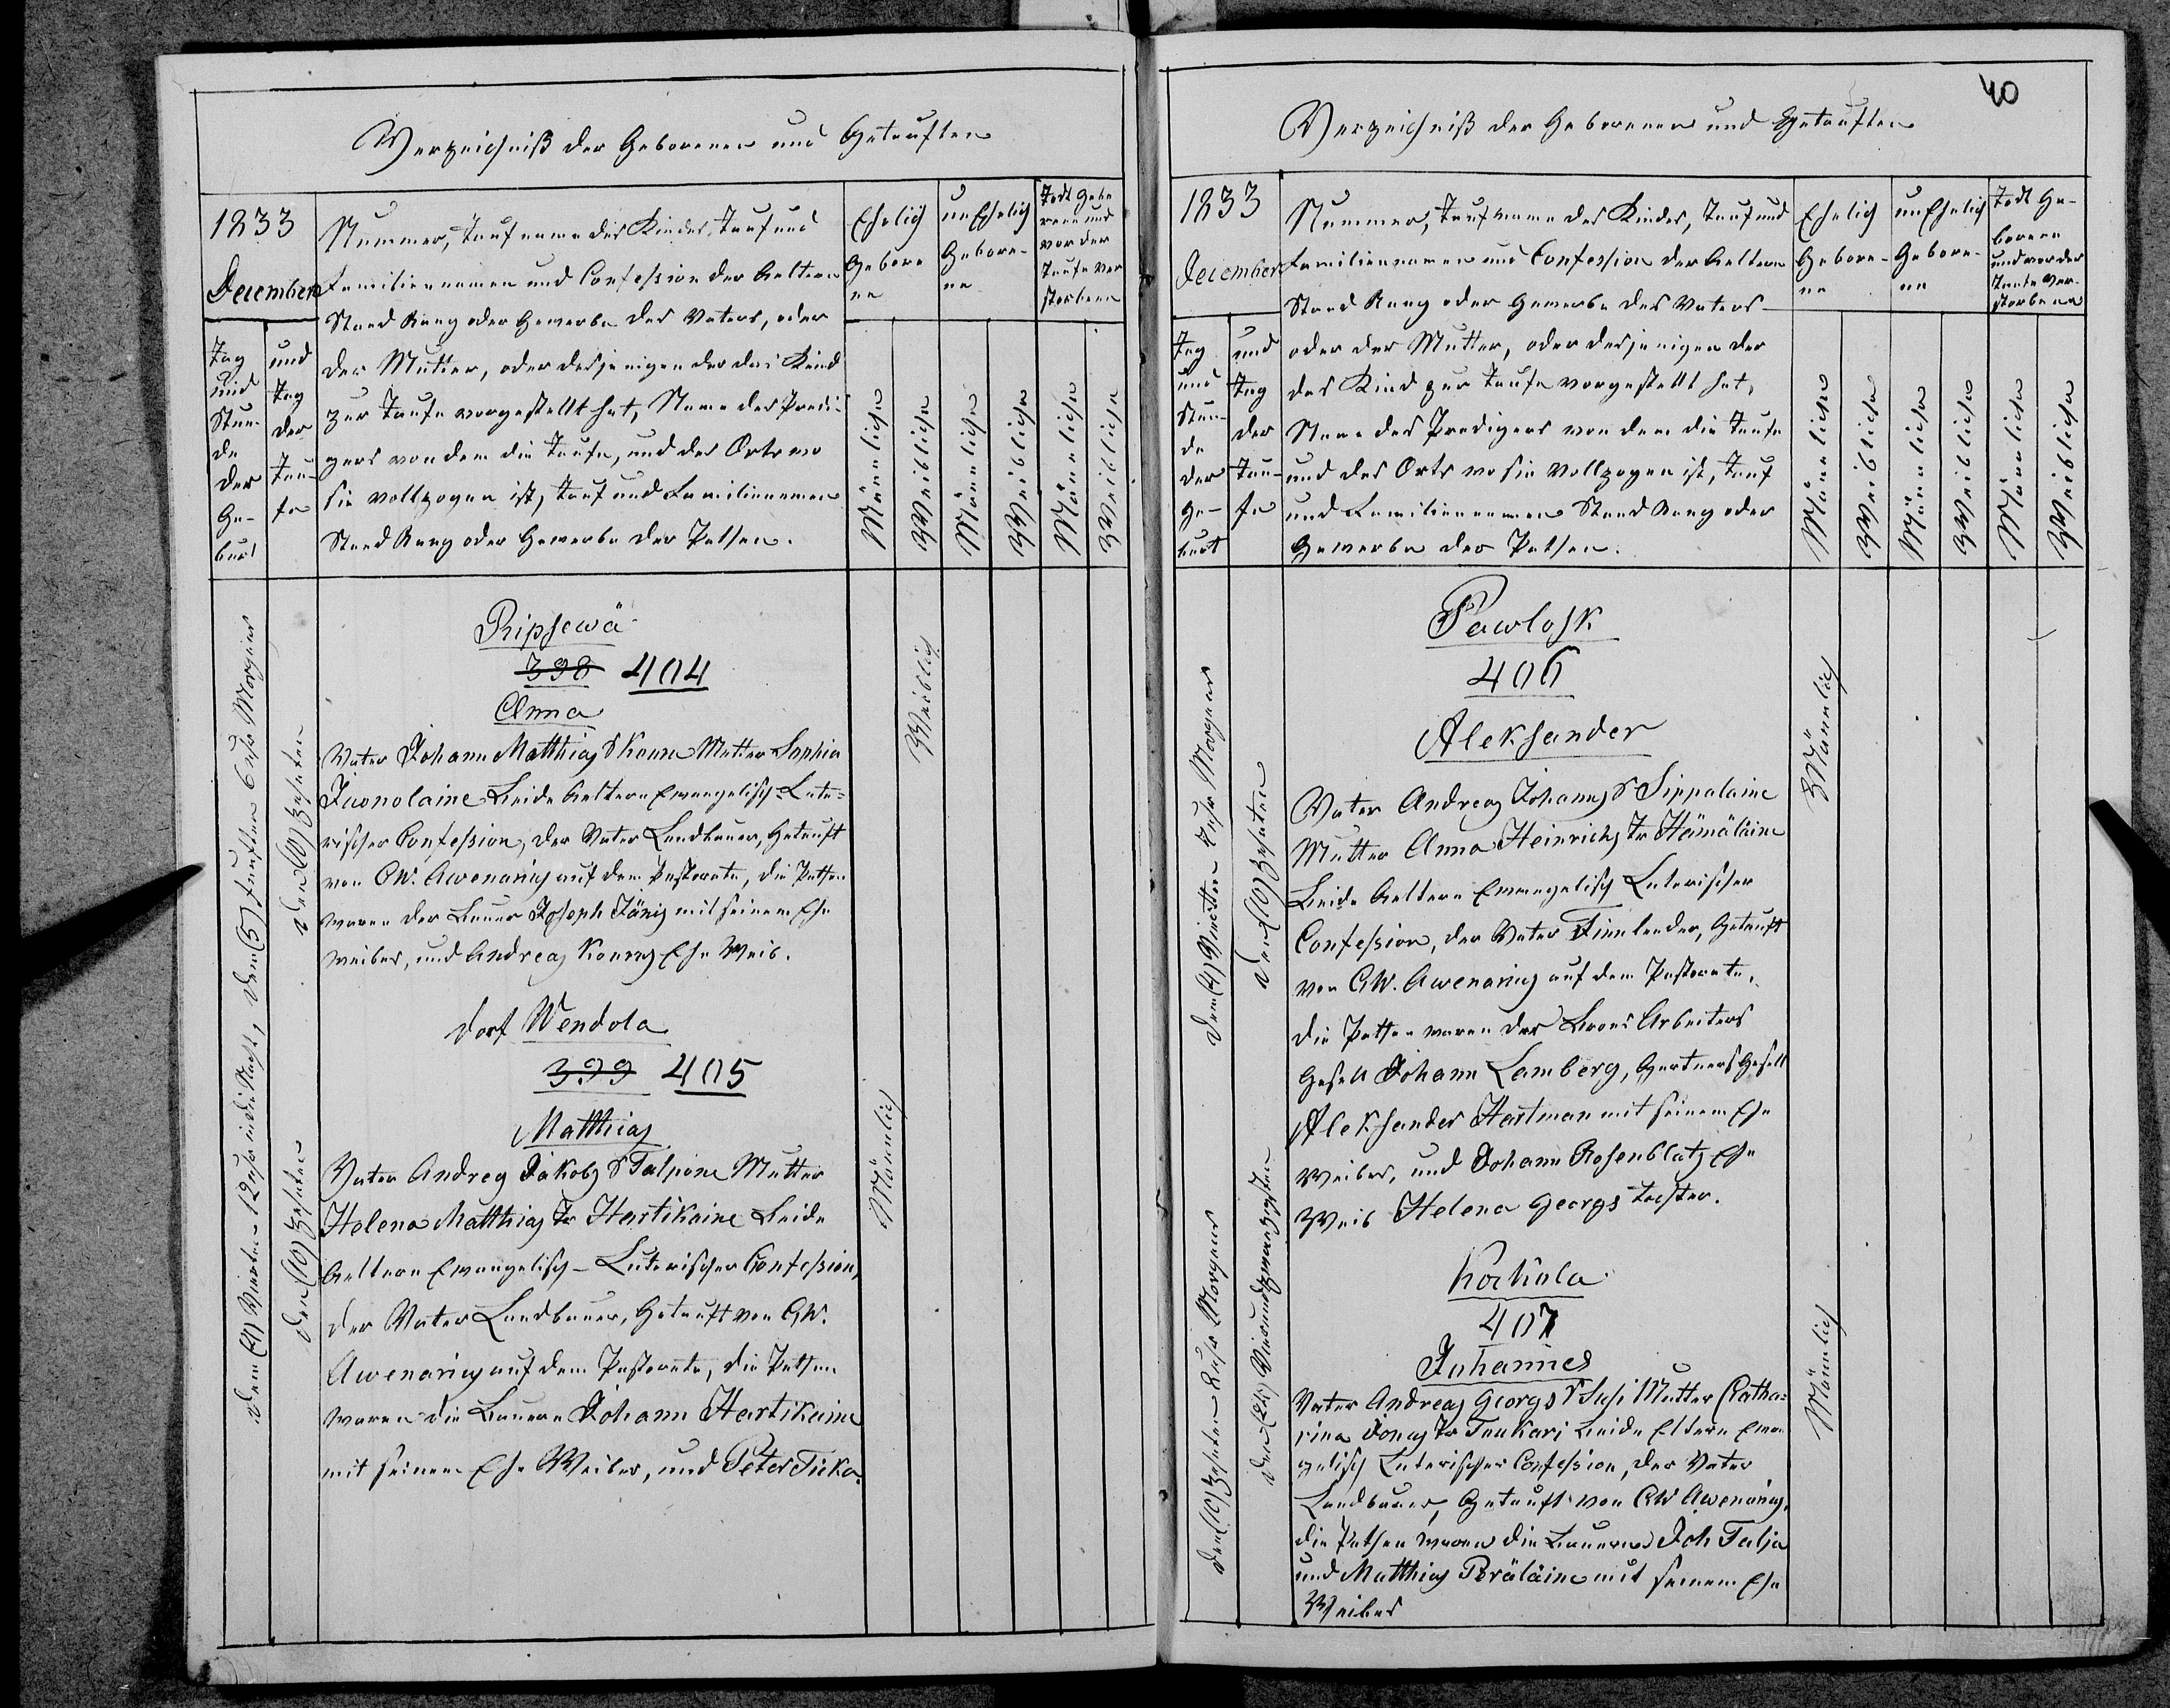 Verzeichniß der Geborenen und Getauften
1833
December
Tag
und
Stun-
de
der
Ge-
burt
und
Tag
der
Tau-
fe
Nummer, Taufname des Kindes, Tauf und
Familiennamen und Confession der Aeltern
Stand Rang oder Gewerbe des Vaters, oder
der Mutter, oder desjenigen der das Kind
zur Taufe vorgestellt hat, Name des Predi-
gers von dem die Taufe, und des Orts wo
sie vollzogen ist, Tauf und Familiennamen
Stand Rang oder Gewerbe der Pathen.
Ehelich
Gebore
ne
unEhelich
Gebore-
ne
Todt Gebo
rene und
vor der
Taufe ver
storbene
Männliche
Weibliche
Männliche
Weibliche
Männliche
Weibliche
den (5) Fünften 6 Uhr Morgens
den (10) Zehnten
Ripsewä
398 404
Anna
Vater Johann Matthias S Konna Mutter Sophia
Juonolaine Beide Aeltern Evangelisch-Lute-
rischer Confession, der Vater Landbauer, Getauft
von CW. Awenarius auf dem Pastorate, die Pathen
waren der Bauer Joseph Jänis mit seinem Ehe
Weibes, und Andreas Konnas Ehe Weib.
Weiblich
den (4) Vierten 12 Uhr in die Nacht,
den (10) Zehnten
Dorf Wendola
399 405
Matthias
Vater Andreas Jakobs S Talpone Mutter
Helena Matthias Tr Hartikaine Beide
Aeltern Evangelisch-Luterischer Confession,
der Vater Landbauer, Getauft von CW.
Awenarius auf dem Pastorate, die Pathen
waren die Bauern Johann Hartikaine
mit seinem Ehe Weibes, und Peter Tuka.
Männlich
40
Verzeichniß der Geborenen und Getauften
1833
December
Tag
und
Stun-
de
der
Ge-
burt
und
Tag
der
Tau-
fe
Nummer, Taufname des Kindes, Tauf und
Familiennamen und Confession der Aeltern
Stand Rang oder Gewerbe des Vaters
oder der Mutter, oder desjenigen der
das Kind zur Taufe vorgestellt hat,
Name des Predigers von dem die Taufe
und des Orts wo sie vollzogen ist, Tauf
und Familiennamen Stand Rang oder
Gewerbe der Pathen.
Ehelich
Gebore-
ne
unEhelich
Gebore-
ne
Todt Ge-
borene
und vor der
Taufe ver-
storbene
Männliche
Weibliche
Männliche
Weibliche
Männliche
Weibliche
den (4) Vierten Uhr Morgens
den (10) Zehnten
Pawlosk
406
Aleksander
Vater Andreas Johanns S Sippalaine
Mutter Anna Heinrichs Tr Hämäläine
Beide Aeltern Evangelisch Luterischer
Confession, der Vater Finnlender, Getauft
von CW. Awenarius auf dem Pastorate,
die Pathen waren der Arbeiters
Gesell Johann Lamberg, Gertners Gesell
Aleksander Hartman mit seinem Ehe
Weibes, und Johann Rosenblats Ehe
Weib Helena Georgs Tochter.
Männlich
den (10) Zehnten Uhr Morgens
den (24) Vierundzwanzigsten
Korkola
407
Johannes
Vater Andreas Georgs S Susi Mutter Catha-
rina Jonas Tr Tenkari Beide Eltern Evan
gelisch Luterischer Confession, der Vater
Landbauer, Getauft von CW Awenarius,
die Pathen waren die Bauern Joh Talja
und Matthias Peräläine mit seinem Ehe
Weibes
Männlich